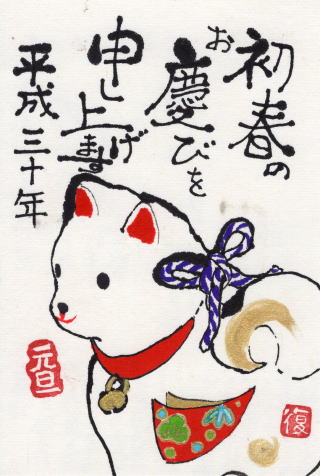 初春の
お慶びを
申し上げ
ます
平成三十年
元旦
復